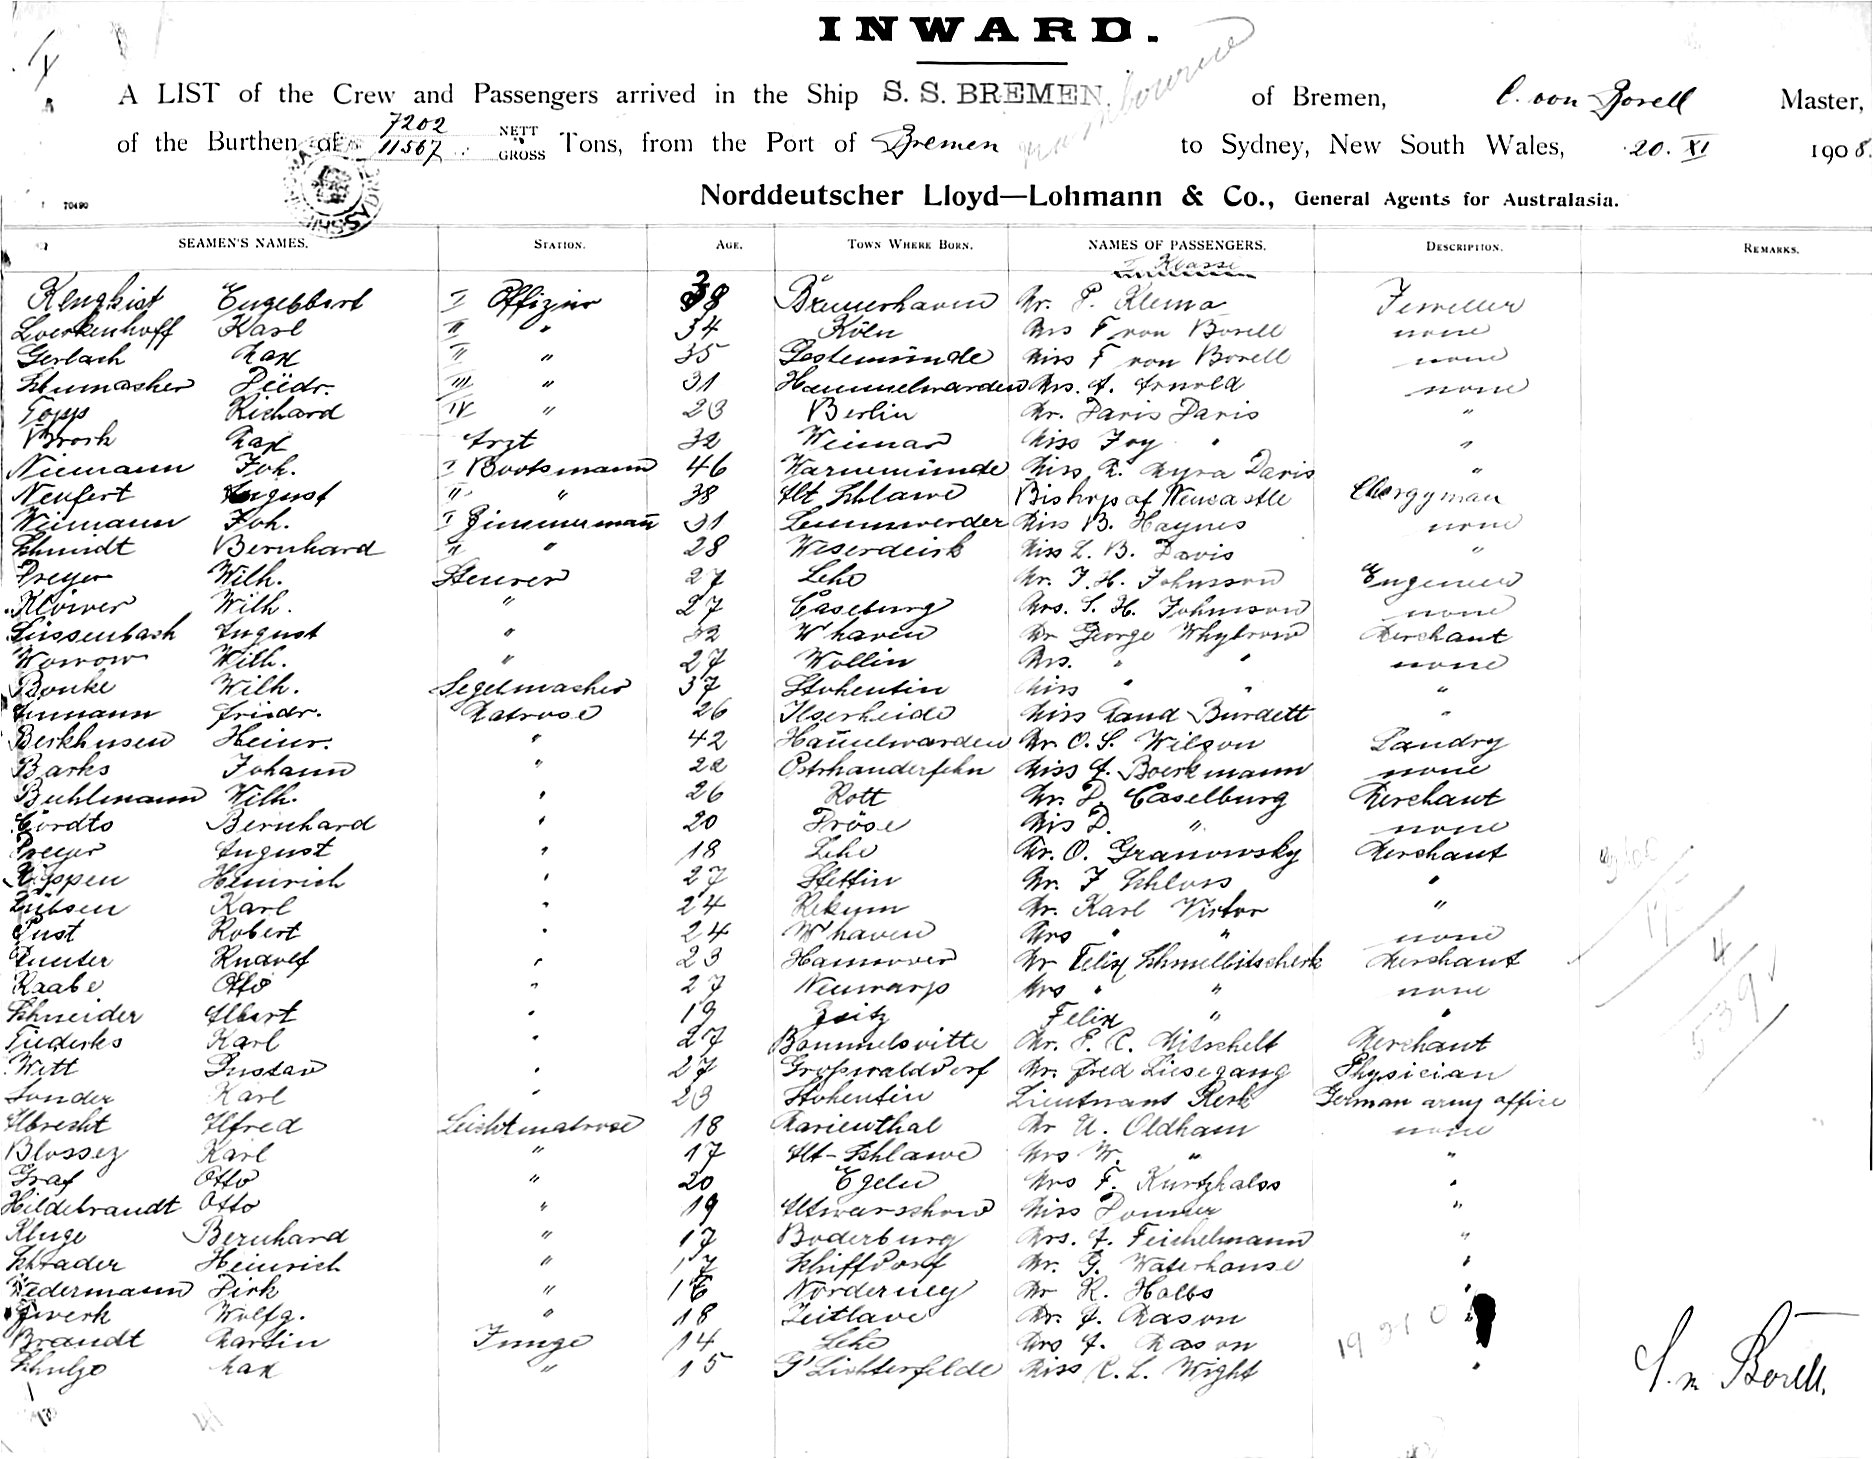 INWARD.
A LIST of the Crew and Passengers arrived in the Ship S. S. BREMEN, of Bremen, C. von Borell Master,
of the Burthen of 7202 11567 NETT & GROSS Tons, from the Port of Bremen to Sydney, New South Wales, 20. XI 1908.
70490
Norddeutscher Lloyd—Lohmann & Co., General Agents for Australasia.
SEAMEN'S NAMES. STATION. AGE. TOWN WHERE BORN. NAMES OF PASSENGERS. DESCRIPTION. REMARKS.
I Klasse
Engelbert I Offizier 38 Bremerhaven Mr. P. Klema Jeweller
Loerkenhoff Karl II " 34 Köln Mrs F von Borell none
Gerlach Max II " 35 Gestemünde Miss F von Borell none
Schumacher Friedr. III " 31 Hammelwarden Mrs. A. Arnold none
Topp Richard IV " 23 Berlin Mr. Davis Davis "
Brosh Max Arzt 32 Weimar Miss Joy " "
Niemann Joh. I Bootsmann 46 Warnemünde Miss M. Myra Davis "
Neufert August II " 38 Alt Schlawe Bishop of Newcastle Clergyman
Weimann Joh. I Zimmermann 31 Lemmwerder Miss B. Haynes none
Schmidt Bernhard II " 28 Weserdeich Miss L. B. Davis "
Dreyer Wilh. Steurer 27 Lehe Mr. J. H. Johnson Engeneer
Klöver Wilh. " 27 Caseburg Mrs. S. H. Johnson none
Süssenbach August " 32 W'haven Mr George Whybrow Merchant
Worow Wilh. " 27 Wollin Mrs. " " none
Bonke Wilh. Segelmacher 37 Stohentin Miss " " "
Ammann Friedr. Matrose 26 Ilserheide Miss Maud Burdett "
Berkhusen Heinr. " 42 Hammelwarden Mr. O. S. Wilson Laundry
Barks Johann " 22 Ostrhauderfehn Miss A. Boerkmann none
Buhlmann Wilh. " 26 Rott Mr. D. Caselburg Merchant
Cordts Bernhard " 20 Fröse Mis D. " none
Dreyer August " 18 Lehe Mr. O. Granowsky Merchant
Köppen Heinrich " 27 Stettin Mr. J Schloss "
Lübsen Karl " 24 Rekum Mr. Karl Victor "
Pust Robert " 24 W'haven Mrs " " none
Punter Rudolf " 23 Hannover Mr Felix Schmelbitscherk Merchant
Raabe Otto " 27 Neuwarp Mrs " " none
Schneider Albert " 19 Zeitz Felix " "
Tiederks Karl " 27 Bommelsvitte Mr. E. C. Mitschelt Merchant
Witt Gustav " 27 Großwalddorf Mr. Fred Liesegang Physician
Sonder Karl " 23 Stohentin Lieutnant Kerk German army office
Albrecht Alfred Leichtmatrose 18 Marienthal Mr U. Oldham none
Blossey Karl " 17 Alt-Schlawe Mrs W. " "
Graf Otto " 20 Egeln Mrs F. Kurtzhalss "
Hildebrandt Otto " 19 Altwarschow Miss Donner "
Kluge Bernhard " 17 Boderburg Mrs. A. Teichelmann "
Schrader Heinrich " 17 Schiffdorf Mr. G. Waterhouse "
Wedermann Dirk " 16 Norderney Mr K. Holbs "
Zwerk Wolfg. " 18 Zeitlave Mr. A. Mason "
Brandt Martin Junge 14 Lehe Mrs A. Mason
Schulze Max " 15 G'Lichterfelde Miss C. L. Wight "
C. v. Borell.